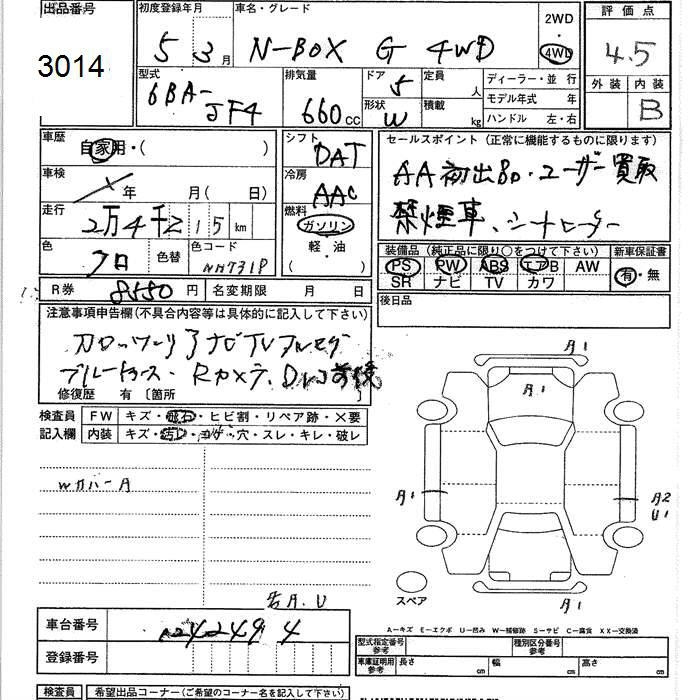 出品番号 3014
初度登録年月 5 3月
車名・グレード N-BOX G 4WD
2WD 4WD
評価点 4.5
外装 内装 B
型式 6BA-JF4
排気量 660cc
ドア 5 形状 W
定員 人 積載 kg
ディーラー・並行
モデル年式 年
ハンドル 左・右
車歴 自家用・( )
車検 年 月( 日)
走行 2万4千215km
色 クロ 色替 色コード NH731P
シフト DAT
冷房 AAC
燃料 ガソリン
軽・油
( )
セールスポイント(正常に機能するものに限ります)
AA初出品・ユーザー買取
禁煙車、シートヒーター
装備品(純正品に限り○をつけて下さい) 新車保証書
PS PW ABS エアB AW 有・無
SR ナビ TV カワ
R券 8550円 名変期限 月 日
後日品
注意事項申告欄(不具合内容等は具体的に記入して下さい)
ナビTVフルセグ
ブルートゥース・Rカメラ、Dレコ前後
修復歴 有 〔箇所 〕
検査員 FW キズ・飛石・ヒビ割・リペア跡・×要
記入欄 内装 キズ・汚レ・コゲ・穴・スレ・キレ・破レ
Wカバー A
A1
A1
A1
A2
U1
スペア
A1
A.U
A－キズ E－エクボ U－凹み W－補修跡 S－サビ C－腐食 XX－交換済
車台番号 4242494
登録番号
型式指定番号 参考 種別区分番号 参考
車庫証明用 参考 長さ cm 幅 cm 高さ cm
検査員 希望出品コーナー(ご希望のコーナー名を記入下さい)